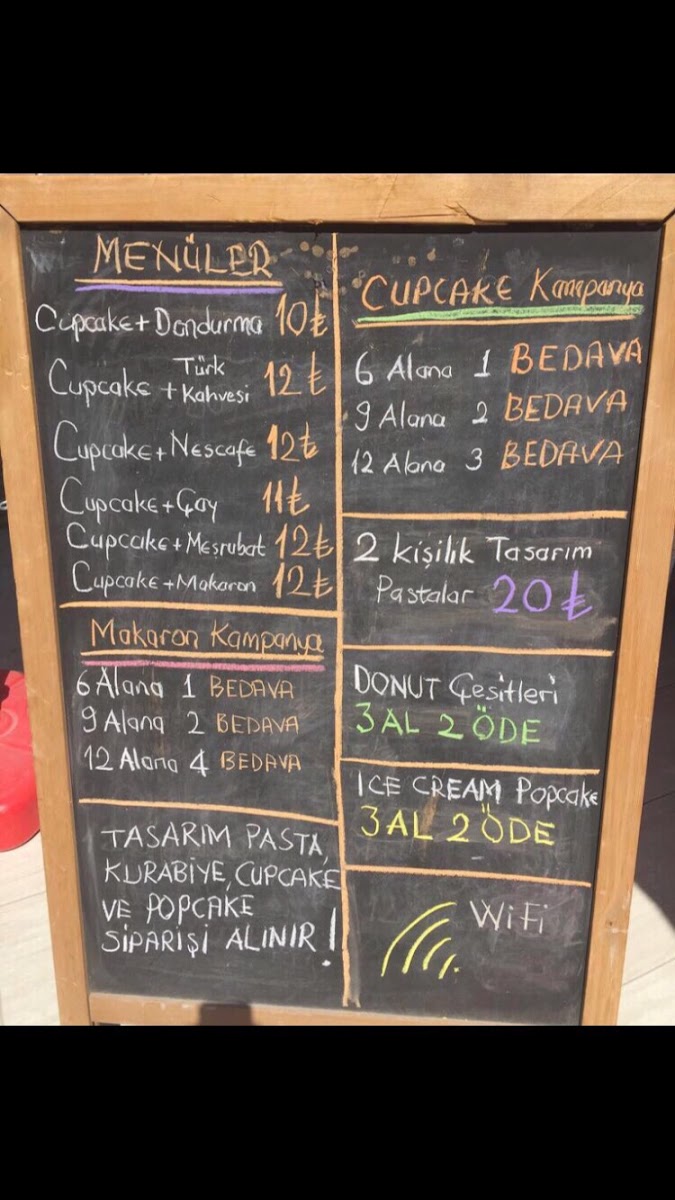 MENÜLER
Cupcake + Dondurma 10₺
Cupcake + Türk Kahvesi 12₺
Cupcake + Nescafe 12₺
Cupcake + Çay 11₺
Cupcake + Meşrubat 12₺
Cupcake + Makaron 12₺
Makaron Kampanya
6 Alana 1 BEDAVA
9 Alana 2 BEDAVA
12 Alana 4 BEDAVA
TASARIM PASTA,
KURABİYE, CUPCAKE
VE POPCAKE
SİPARİŞİ ALINIR!
CUPCAKE Kampanya
6 Alana 1 BEDAVA
9 Alana 2 BEDAVA
12 Alana 3 BEDAVA
2 Kişilik Tasarım
Pastalar 20₺
DONUT Çeşitleri
3 AL 2 ÖDE
ICE CREAM Popcake
3 AL 2 ÖDE
WiFi